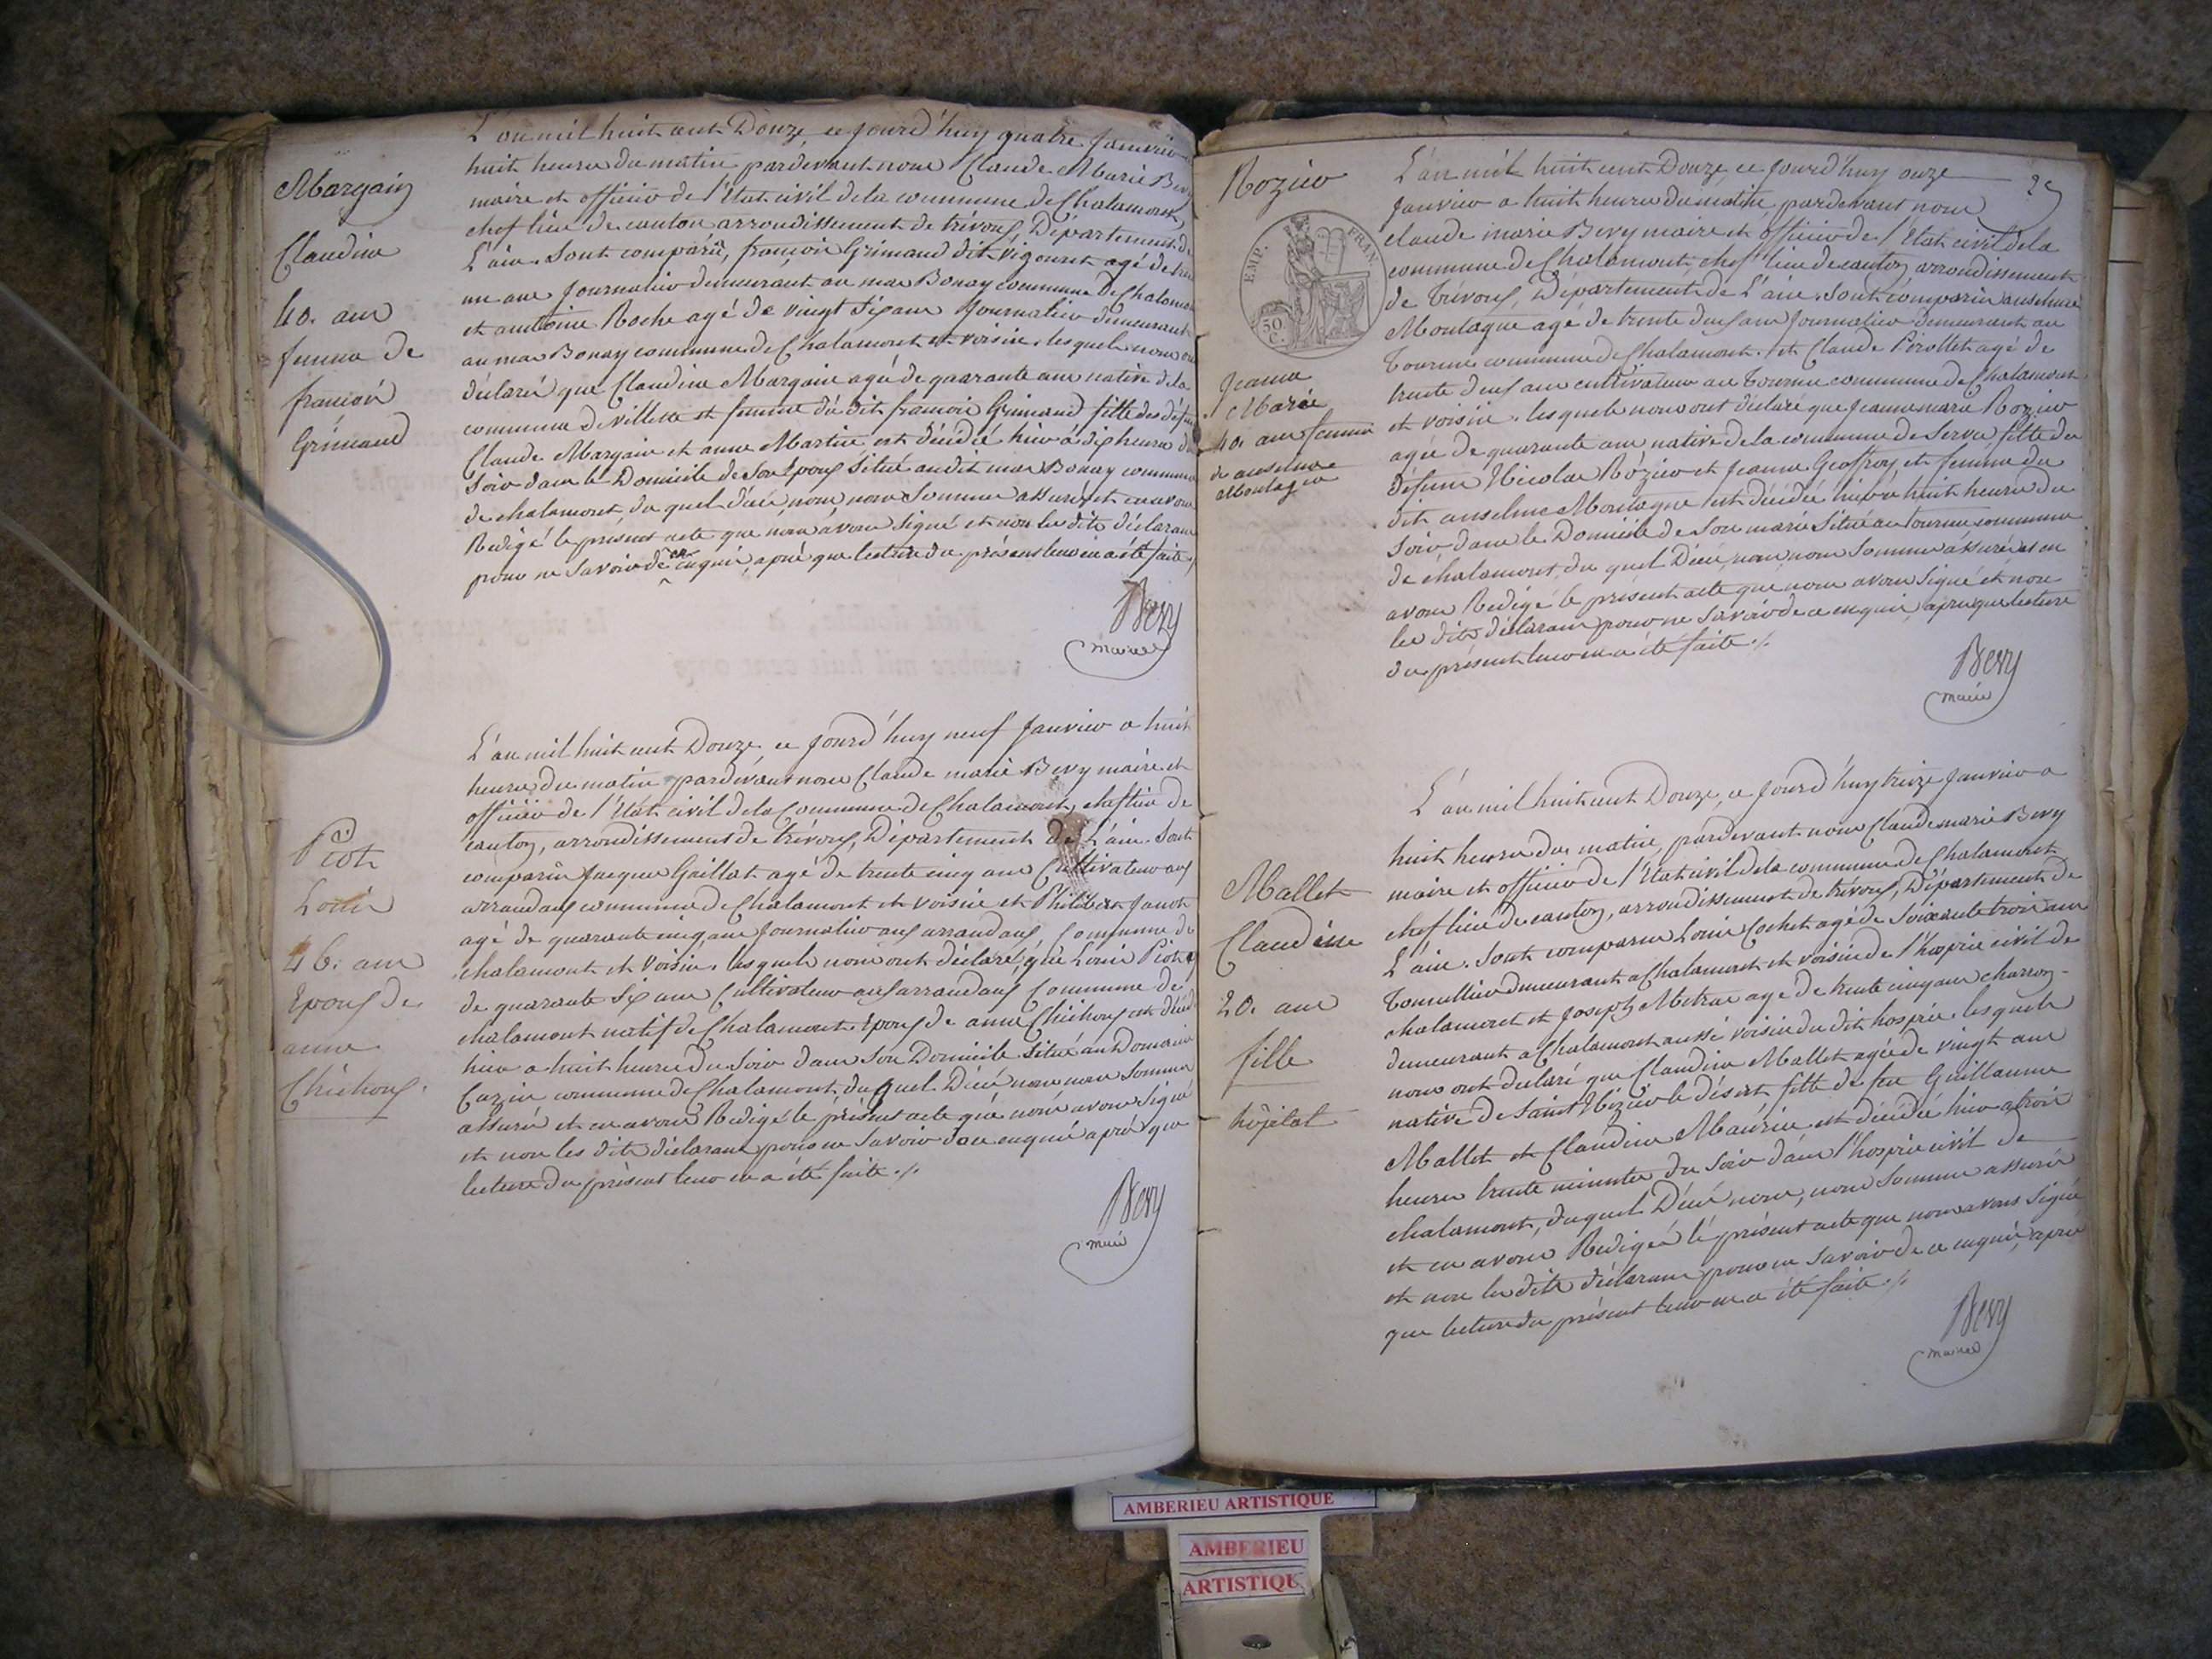 Margain
Claudine
40. ans
femme de
françois
Grimaud
L'an mil huit cent Douze ce jourd'huy quatre Janvier
huit heures du matin pardevant nous Claude Marie Bevy
maire et officier de l'Etat civil de la commune de Chalamont,
chef lieu de canton arrondissement de trévoux, Département de
L'ain. Sont comparus, françois Grimaud dit vigouret agé de
un ans Journalier demeurant au mas Bonay commune de Chalamont
et antoine Roche agé de vingt six ans Journalier demeurant
au mas Bonay commune de Chalamont et voisin. lesquels nous ont
déclaré que Claudine Margain agée de quarante ans native de la
commune de villette et femme du dit françois Grimaud fille des défunts
Claude Margain et anne Martin est décédée hier à dix heures du
soir dans le Domicile de son Epoux situé au dit mas Bonay commune
de chalamont, du quel décès, nous nous sommes assurés et en avons
Redigé le present acte que nous avons signé et non les dits déclarans
pour ne savoir de ce enquis, aprés que lecture du présent leur en a été faite ./.
Bevy
maire
Piot
Louis
46. ans
Epoux de
anne
Chichoux.
L'an mil huit cent Douze, ce jourd'huy neuf Janvier a huit
heures du matin pardevant nous Claude marie Bevy maire et
officier de l'Etat civil de la Commune de Chalamont, chef lieu de
canton, arrondissement de trévoux, Département de L'ain. Sont
comparus Jacques Gaillat agé de trente cinq ans Cultivateur aux
arrandaux commune de Chalamont et voisin et Philibert Janot
agé de quarante cinq ans Journalier aux arrandaux Commune de
chalamont et voisin. lesquels nous ont déclaré, que Louis Piot
de quarante six ans Cultivateur aux arrandaux Commune de
chalamont natif de Chalamont. Epoux de anne Chichoux est décédé
hier a huit heures du soir dans son Domicile situé au Domaine
Cazin commune de Chalamont, du quel Décès nous nous sommes
assurés et en avons Redigé le présent acte que nous avons signé
et non les dits déclarans pour ne savoir de ce enquis aprés que
lecture du présent leur en a été faite ./.
Bevy
maire
29
Rozier
EMP. FRAN.
50 C.
Jeanne
Marie
40. ans femme
de anselme
Montagne
L'an mil huit cent Douze, ce jourd'huy onze
Janvier a huit heures du matin pardevant nous
Claude marie Bevy maire et officier de l'Etat civil de la
commune de Chalamont, chef lieu de canton arrondissement
de Trévoux, Département de L'ain. Sont comparus anselme
Montagne agé de trente deux ans Journalier demeurant au
Tournu commune de Chalamont. et Claude Perollet agé de
trente deux ans cultivateur au Tournu commune de Chalamont
et voisin. lesquels nous ont déclaré que Jeanne marie Rozier
agée de quarante ans native de la commune de Serva fille du
défunt Nicolas Rozier et Jeanne Geoffroy, et femme du
dit anselme Montagne est décédée hier a huit heures du
soir, dans le Domicile de son marie situé au Tournu commune
de chalamont, du quel Décès, nous nous sommes assurés et en
avons Redigé le présent acte que nous avons signé et non
les dits déclarans pour ne savoir de ce enquis, aprés que lecture
du présent leur en a été faite ./.
Bevy
maire
Mallet
Claudine
20. ans
fille
hôpital
L'an mil huit cent Douze, ce jourd'huy treize Janvier a
huit heures du matin, pardevant nous Claude marie Bevy
maire et officier de l'Etat civil de la commune de Chalamont
chef lieu de canton, arrondissement de trévoux, Département de
L'ain. Sont comparus Louis Cochet agé de soixante trois ans
Tonnellier demeurant a Chalamont et voisin de l'hospice civil de
chalamont et Joseph Metras agé de trente cinq ans charron
demeurant a Chalamont aussi voisin du dit hospice. lesquels
nous ont declaré que Claudine Mallet agée de vingt ans
native de Saint Nizier le désert fille de feu Guillaume
Mallet et Claudine Maurice est décédée hier a trois
heures trente minutes du soir dans l'hospice civil de
chalamont, duquel Décès nous, nous sommes assurés
et en avons Redigé le présent acte que nous avons signé
et non les dits déclarans pour ne savoir de ce enquis, aprés
que lecture du présent leur en a été faite ./.
Bevy
maire
AMBERIEU ARTISTIQUE
AMBERIEU
ARTISTIQUE